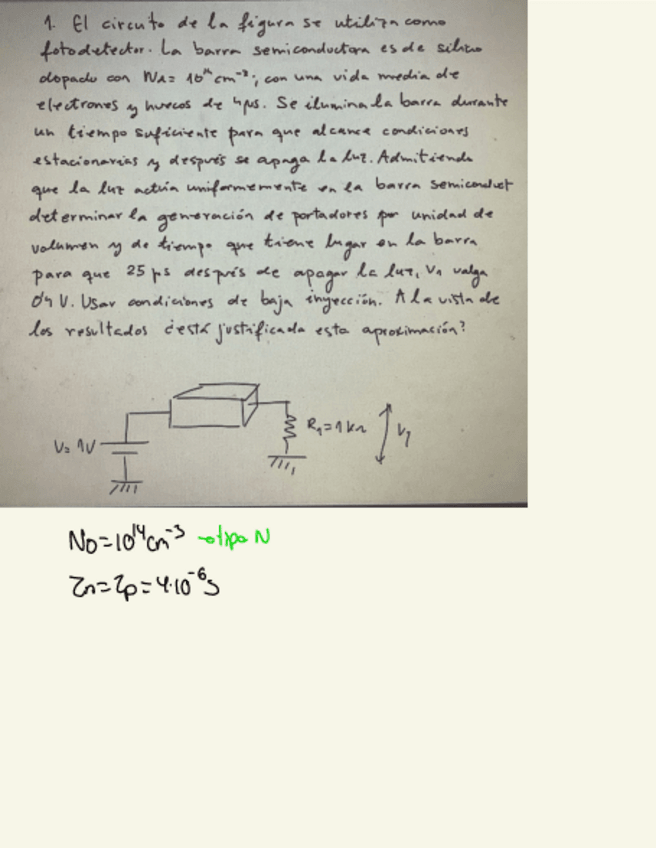 1. El circuito de la figura se utiliza como
fotodetector. La barra semiconductora es de silicio
dopado con NA = 10¹⁴ cm⁻³, con una vida media de
electrones y huecos de 4μs. Se ilumina la barra durante
un tiempo suficiente para que alcance condiciones
estacionarias y después se apaga la luz. Admitiendo
que la luz actúa uniformemente en la barra semiconduct
determinar la generación de portadores por unidad de
volumen y de tiempo que tiene lugar en la barra
para que 25 μs después de apagar la luz, V1 valga
0'4 V. Usar condiciones de baja inyección. A la vista de
los resultados ¿está justificada esta aproximación?
V= 1V
R1=1kΩ
V1
ND=10¹⁴cm⁻³ →tipo N
τn=τp=4·10⁻⁶s